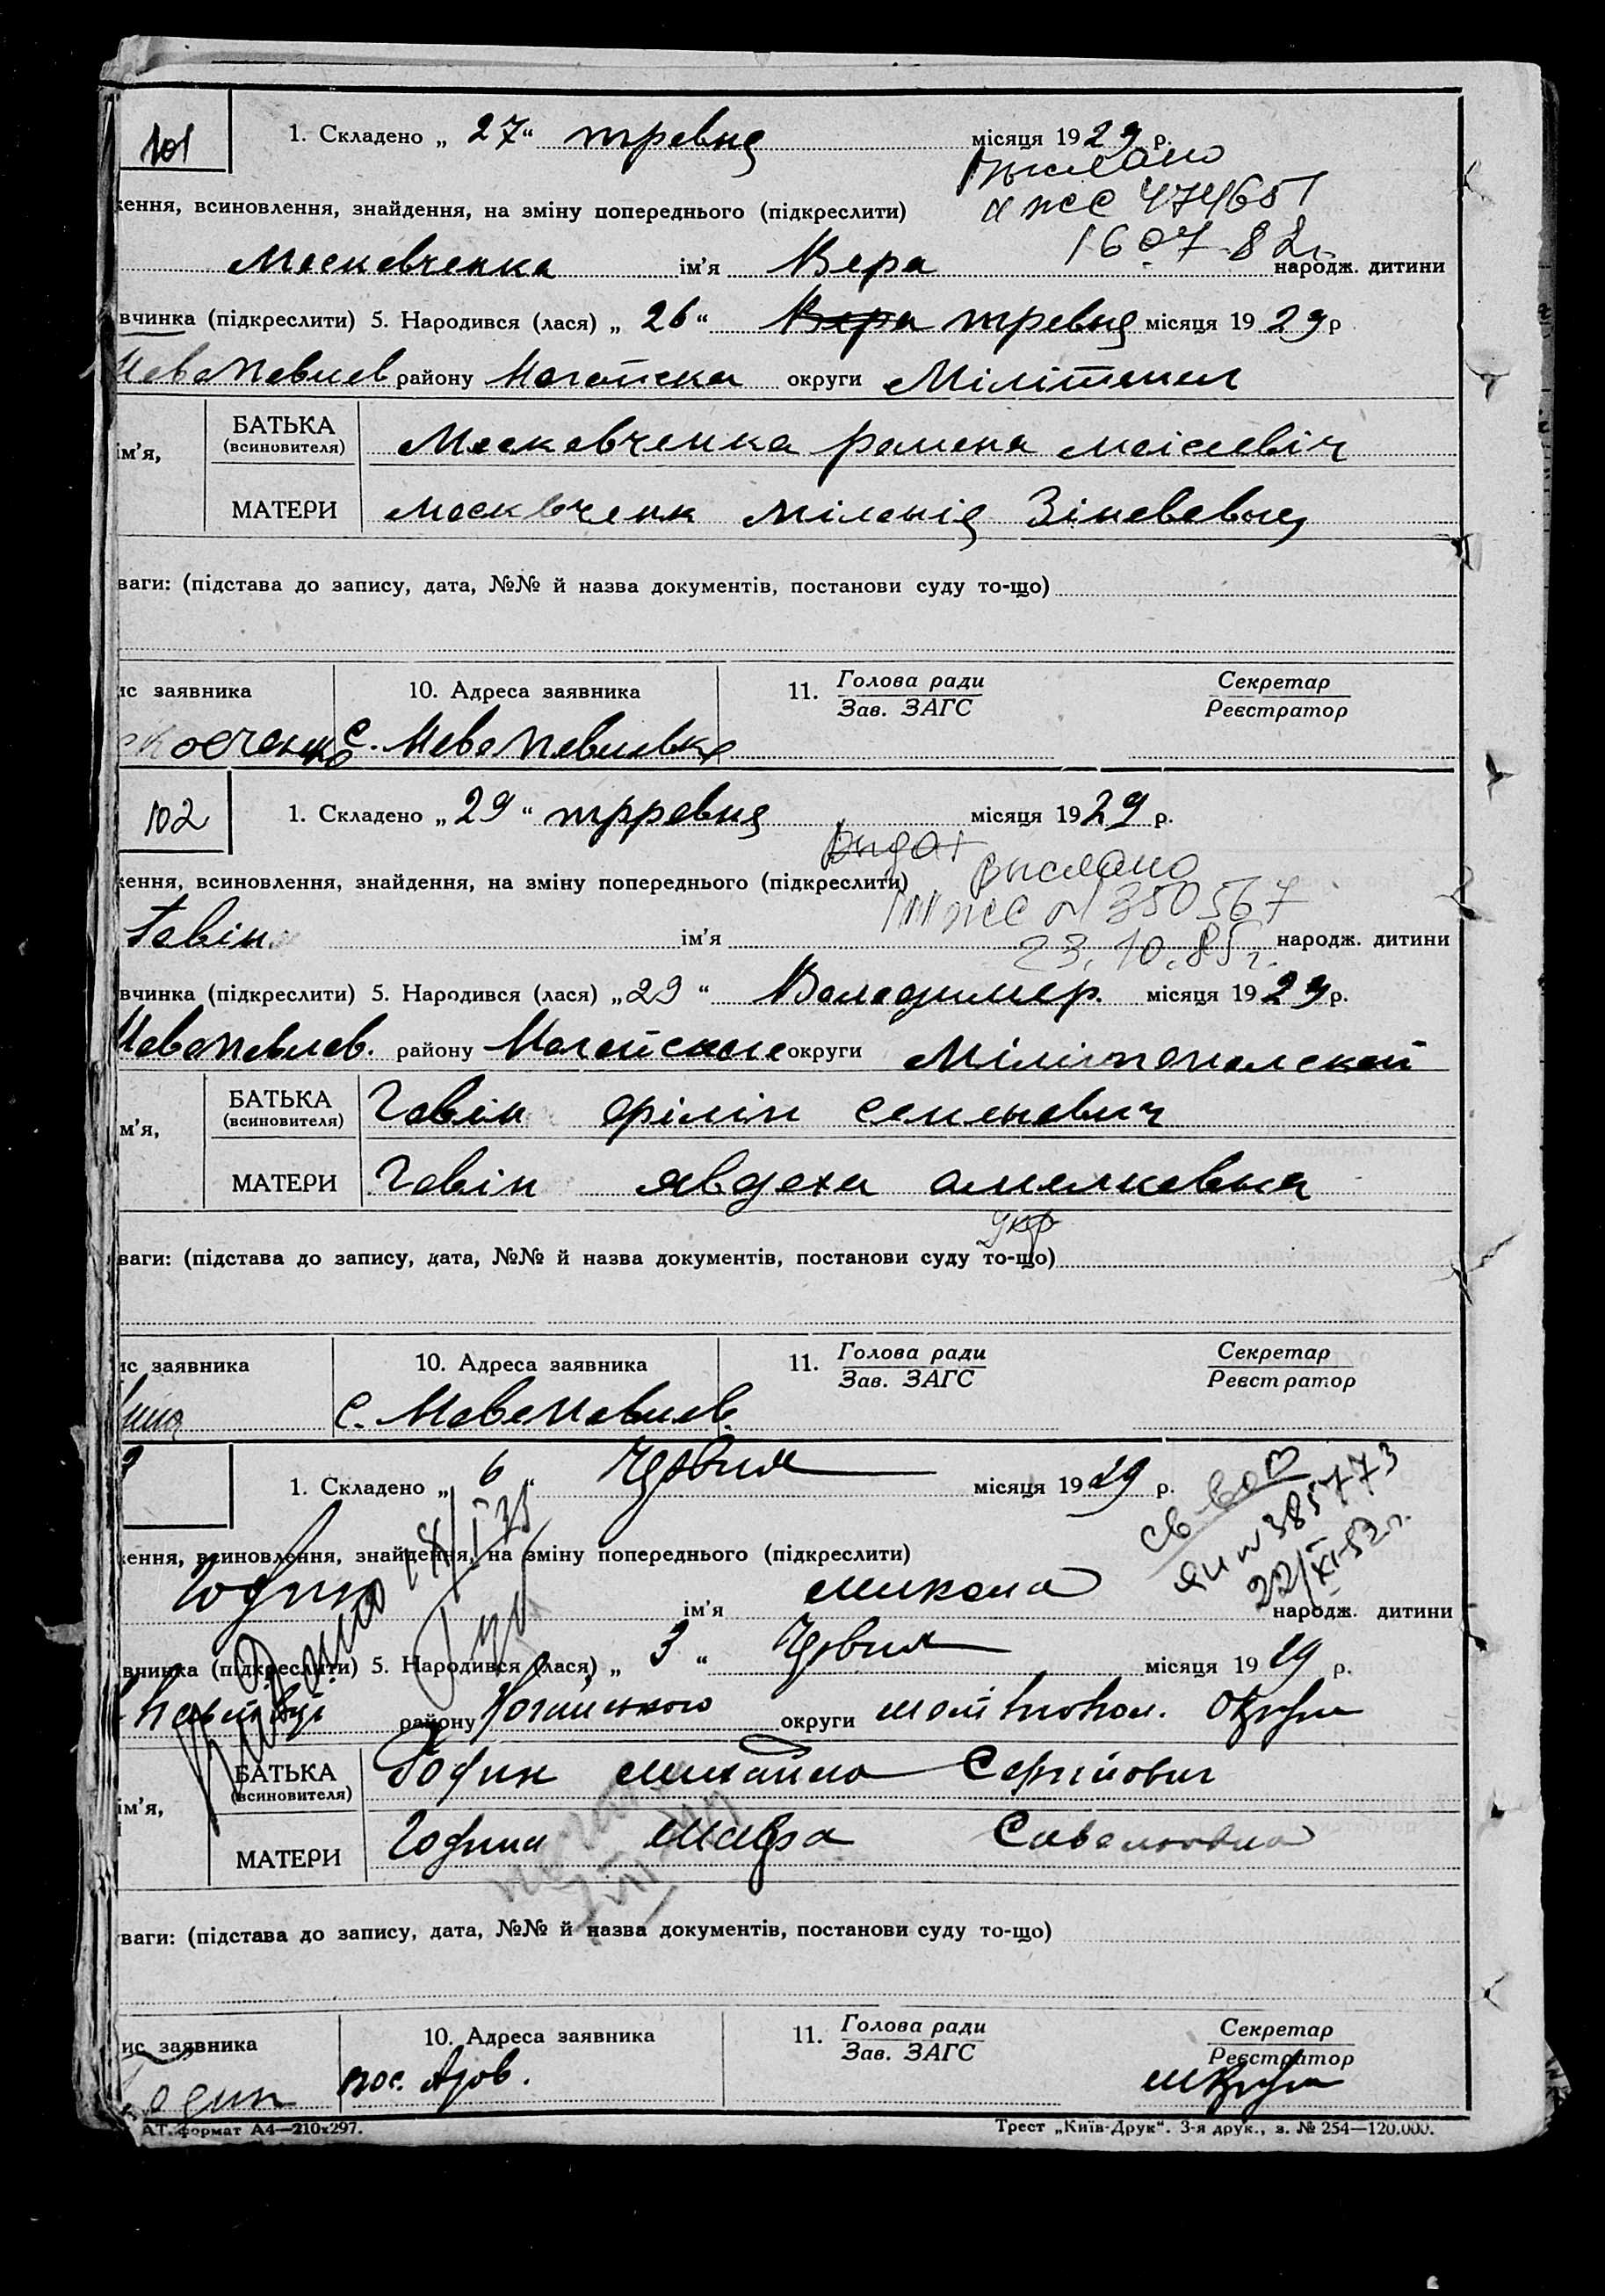 101
1. Складено „ 27 “ тревня місяця 1929 р.
Выслано
ження, всиновлення, знайдення, на зміну попереднього (підкреслити)
ЖС 474651
16 07 82г.
Московченка ім’я Вера народж. дитини
вчинка (підкреслити) 5. Народився (лася) „ 26 “ Вера тревня місяця 1929 р
Новопавлов району Ногайска округи Мілітопол
ім’я, БАТЬКА (всиновителя) Московченка Ромона Моісеевіч
МАТЕРИ Москвченк Міланія Зіновевня
ваги: (підстава до запису, дата, №№ й назва документів, постанови суду то-що)
ис заявника 10. Адреса заявника 11. Голова ради Зав. ЗАГС Секретар Реєстратор
сковченко С. Новопавловка
102
1. Складено „ 29 “ трревня місяця 1929 р.
Выдат выслано
ження, всиновлення, знайдення, на зміну попереднього (підкреслити)
ЖС № 350567
Говін ім’я народж. дитини
23.10.85г.
вчинка (підкреслити) 5. Народився (лася) „ 29 “ Володимер. місяця 1929 р.
Новопавлов. району Ногайское округи Мілітопольской
м’я, БАТЬКА (всиновителя) Говін Філіп Семенович
МАТЕРИ Говін Явдоха Омелковна
укр
ваги: (підстава до запису, дата, №№ й назва документів, постанови суду то-що)
ис заявника 10. Адреса заявника 11. Голова ради Зав. ЗАГС Секретар Реєстратор
С. Новопавлов.
1. Складено „ 6 “ Червня місяця 1929 р.
ження, всиновлення, знайдення, на зміну попереднього (підкреслити)
ЯИ № 385773
22/XI-52г.
Годин ім’я Микола народж. дитини
вчинка (підкреслити) 5. Народився (лася) „ 3 “ Червня місяця 1929 р.
Павлівці району Ногайського округи Мелітопол. Округи
ім’я, БАТЬКА (всиновителя) Годин Михайло Сергійович
МАТЕРИ Година Мавра Савеловна
ваги: (підстава до запису, дата, №№ й назва документів, постанови суду то-що)
ис заявника 10. Адреса заявника 11. Голова ради Зав. ЗАГС Секретар Реєстратор
Годин пос. Азов.
АТ. формат А4—210х297. Трест „Київ-Друк“. 3-я друк., з. № 254—120.000.